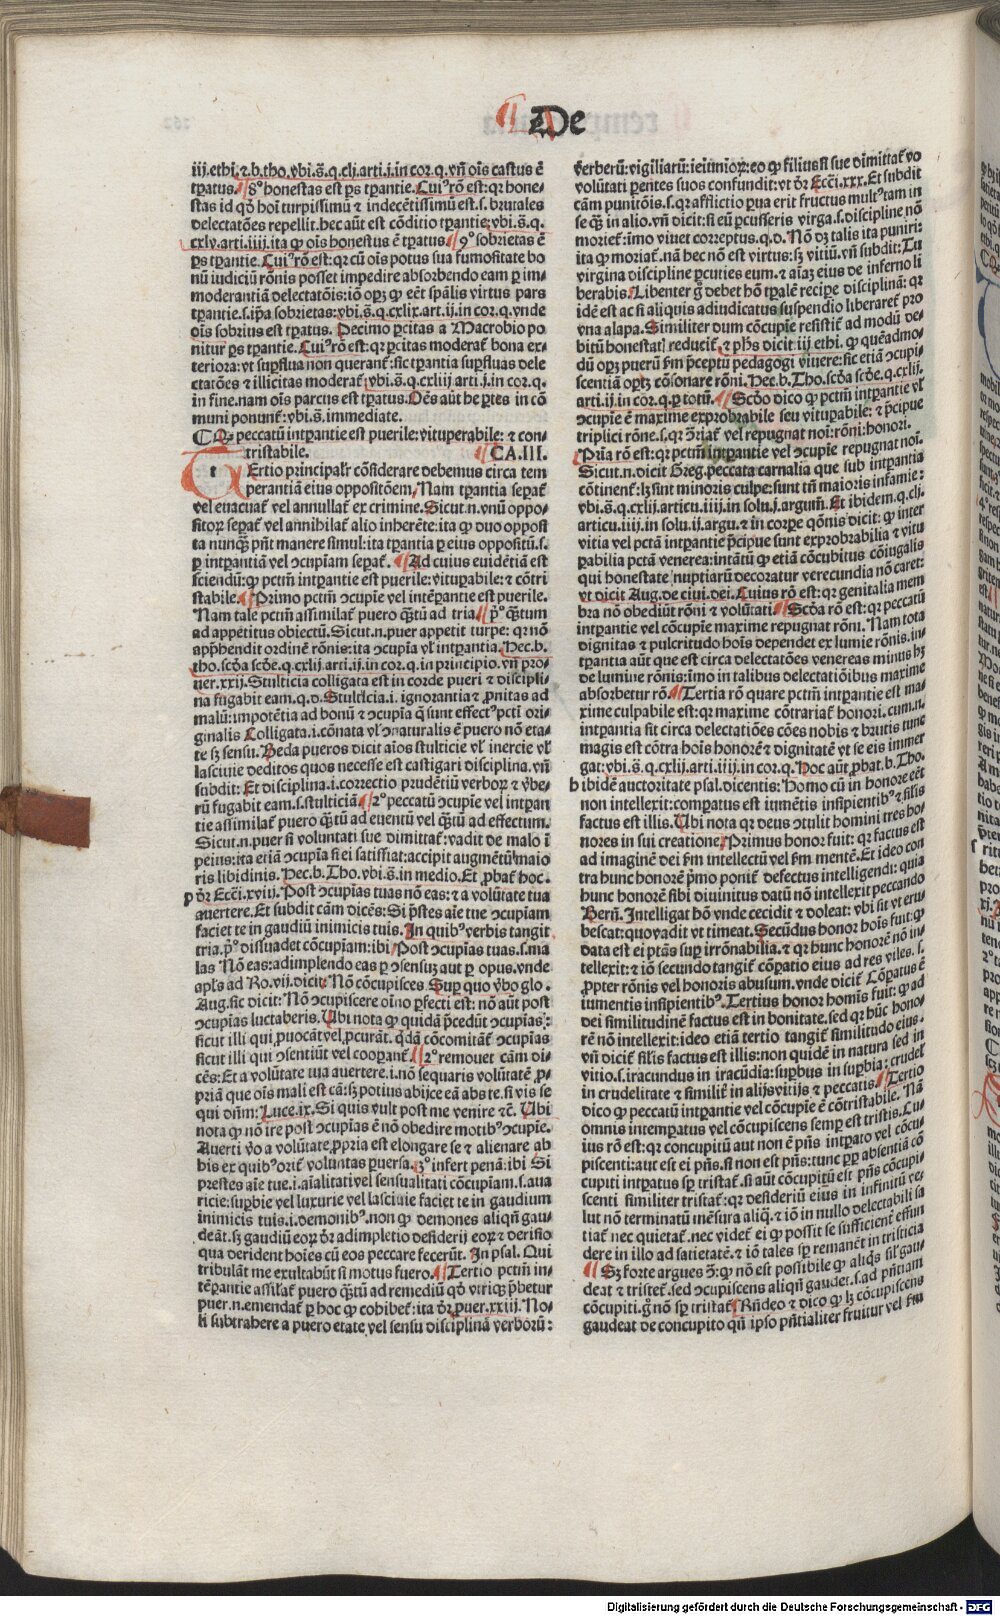 De
iij.ethi.⁊.b.tho.vbi.s̄.q.clj.arti.j.in cor.q.vn̄ oīs castus ē
tꝑatus. 8° honestas est ꝑs tꝑantie. Cuiꝰ rō est: qꝛ hone⸗
stas id qd̓ hoī turpissimū ⁊ indecētissimū est.s.brutales
delectatōes repellit.hec aūt est cōditio tꝑantie:vbi.s̄.q.
cxlv.arti.iiij.ita ꝙ oīs honestus ē tꝑatus. 9° sobrietas ē
ꝑs tꝑantie. Cuiꝰ rō est: qꝛ cū oīs potus sua fumositate bo
nū iudiciū rōnis posset impedire absorbendo eam ꝑ im⸗
moderantiā delectatōis:iō opꝫ ꝙ eēt spālis virtus pars
tꝑantie.s.ip̄a sobrietas:vbi.s̄.q.cxlix.art.ij.in cor.q.vnde
oīs sobrius est tꝑatus. Decimo ꝑcitas a Macrobio po
nitur ꝑs tꝑantie. Cuiꝰ rō est: qꝛ ꝑcitas moderat̄ bona ex⸗
teriora:vt suꝑflua non querant̄:sic tꝑantia suꝑfluas dele
ctatōes ⁊ illicitas moderat̄:vbi.s̄.q.cxliij.arti.j.in cor.q.
in fine.nam oīs parcus est tꝑatus. Oēs aūt he ꝑtes in cō
muni ponunt̄:vbi.s̄.immediate.
Qꝙ peccatū intꝑantie est puerile:vituperabile: ⁊ con⸗
tristabile. CA.III.
TErtio principalr̄ cōsiderare debemus circa tem
perantiā eius oppositōem. Nam tꝑantia seꝑat̄
vel euacuat̄ vel annullat̄ ex crimine. Sicut.n.vnū oppo⸗
sitoꝝ seꝑat̄ vel annihilat̄ alio inherēte:ita ꝙ duo opposi
ta nunꝙ̄ pn̄t manere simul:ita tꝑantia ꝑ eius oppositū.s.
ꝑ intꝑantiā vel ↄcupīam seꝑat̄. Ad cuius euidētiā est
sciendū:ꝙ pctm̄ intꝑantie est puerile:vituꝑabile: ⁊ cōtri
stabile. Primo pctm̄ ↄcupīe vel intēꝑantie est puerile.
Nam tale pctm̄ assimilat̄ puero qꝫ̄tū ad tria. p° qꝫ̄tum
ad appetitus obiectū. Sicut.n.puer appetit turpe: qꝛ nō
app̄hendit ordinē rōnis:ita ↄcupīa vl̓ intꝑantia. Hec.b.
tho.scd̓a scd̓e.q.cxlij.arti.ij.in cor.q.in principio.vn̄ pro⸗
uer.xxij. Stulticia colligata est in corde pueri ⁊ discipli⸗
na fugabit eam.q.d. Stulticia.i.ignorantia ⁊ ꝓnitas ad
malū:impotētia ad bonū ⁊ ↄcupīa q̄ sunt effectꝰ pcti ori⸗
ginalis Colligata.i.cōnata vl̓ ↄnaturalis ē puero nō eta⸗
te sꝫ sensu. Beda pueros dicit aīos stulticie vl̓ inercie vl̓
lasciuie deditos quos necesse est castigari disciplina.vn̄
subdit: Et disciplina.i.correctio prudētiū verboꝝ ⁊ v̓be⸗
rū fugabit eam.s.stulticiā. 2° peccatū ↄcupīe vel intꝑan
tie assimilat̄ puero qꝫ̄tū ad euentū vel qꝫ̄tū ad effectum.
Sicut.n.puer si voluntati sue dimittat̄:vadit de malo ī
peius:ita etiā ↄcupīa si ei satisfiat:accipit augmētū maio
ris libidinis. Hec.b.Tho.vbi.s̄.in medio. Et ꝓbat̄ hoc.
p dr̄ Ecci.xviij. Post ↄcupīas tuas nō eas: ⁊ a volūtate tua
auertere. Et subdit cām dicēs: Si p̄stes aīe tue ↄcupīam
faciet te in gaudiū inimicis tuis. In quibꝰ verbis tangit
tria. p° dissuadet cōcupīam:ibi Post ↄcupīas tuas.s.ma
las Nō eas:adimplendo eas ꝑ ↄsensuꝫ aut ꝑ opus.vnde
apl̓s ad Ro.vij.dicit: Nō cōcupisces. Suꝑ quo v̓bo glo.
Aug.sic dicit: Nō ↄcupiscere oīno ꝑfecti est: nō aūt post
ↄcupīas luctaberis. Ubi nota ꝙ quidā p̄cedūt ↄcupīas:
sicut illi qui ꝓuocāt vel ꝓcurāt. qd̄ā cōcomitāt̄ ↄcupīas
sicut illi qui ↄsentiūt vel cooꝑant̄. 2° remouet cām di⸗
cēs: Et a volūtate tua auertere.i.nō sequaris volūtatē ꝓ⸗
priā que oīs mali est cā:sꝫ potius abijce eā abs te.si vis se
qui dn̄m: Luce.ix. Si quis vult post me venire ⁊c̄. Ubi
nota ꝙ nō ire post ↄcupīas ē nō obedire motibꝰ ↄcupīe.
Auerti v̓o a volūtate ꝓpria est elongare se ⁊ alienare ab
his ex quibꝰ orit̄ voluntas ꝑuersa. 3° infert penā:ibi Si
prestes aīe tue.i.aīalitati vel sensualitati cōcupīam.s.aua
ricie:suꝑbie vel luxurie vel lasciuie faciet te in gaudium
inimicis tuis.i.demonibꝰ.non ꝙ demones aliqn̄ gau⸗
deāt.sꝫ gaudiū eoꝝ dr̄ adimpletio desiderij eoꝝ ⁊ derisio
qua derident hoīes cū eos peccare fecerūt. In psal. Qui
tribulāt me exultabūt si motus fuero. Tertio pctm̄ in⸗
tēꝑantie assilat̄ puero qꝫ̄tū ad remediū qd̓ vtriqꝫ p̄betur
puer.n.emendat̄ ꝑ hoc ꝙ cohibet̄:ita dr̄ ꝓuer.xxiij. No⸗
li subtrahere a puero etate vel sensu disciplinā verborū:
v̓berū:vigiliarū:ieiunioꝝ:eo ꝙ filiussi sue dimittat̄ vo
volūtati ꝑentes suos confundit:vt dr̄ Ecci.xxx. Et subdit
cām punitōis.s.qꝛ afflictio ꝑua erit fructus multꝰ tam in
se qꝫ̄ in alio.vn̄ dicit:si eū ꝑcusseris virga.s.discipline nō
moriet̄:īmo viuet correptus.q.d. Nō dꝫ talis ita puniri:
ita ꝙ moriat̄.nā hec nō est virtus:sꝫ vitiū.vn̄ subdit: Tu
virgina discipline ꝑcuties eum. ⁊ aīaꝫ eius de inferno li
berabis. Libenter g̊ debet hō tꝑalē reciꝑe disciplinā: qꝛ
idē est ac si aliquis adiudicatus suspendio liberaret̄ pro
vna alapa. Similiter dum cōcupīe resistit̄ ad modū de⸗
bitū honestat̄ reducit̄. ⁊ ph̄s dicit iij.ethi. ꝙ quēadmo⸗
dū opꝫ puerū s̄m p̄ceptū pedagogi viuere:sic etiā ↄcupi⸗
scentiā oportꝫ cōsonare rōni. Hec.b.Tho.scd̓a scd̓e.q.cxlij.
arti.ij.in cor.q.ꝑ totū. Scd̓o dico ꝙ pctm̄ intꝑantie vl̓
ↄcupīe ē maxime exprobrabile seu vituꝑabile: ⁊ p̄cipue
triplici rōne.s.qꝛ ↄ̄riat̄ vel repugnat noī:rōni:honori.
Prīa rō est: qꝛ pctm̄ intꝑantie vel ↄcupīe repugnat noī.
Sicut.n.dicit Greg.peccata carnalia que sub intꝑantia
cōtinent̄:lꝫ sint minoris culpe:sunt tn̄ maioris infamie:
vbi.s̄.q.cxlij.articu.iiij.in solu.j.argum̄. Et ibidem.q.clj.
articu.iiij.in solu.ij.argu. ⁊ in corꝑe q̄onis dicit: ꝙ inter
vitia vel pctā intꝑantie p̄cipue sunt exprobrabilia ⁊ vitu
ꝑabilia pctā venerea:intātū ꝙ etiā cōcubitus cōiugalis
qui honestate nuptiarū decoratur verecundia nō caret:
vt dicit Aug.de ciui.dei. Cuius rō est: qꝛ genitalia mem
bra nō obediūt rōni ⁊ volūtati. Scd̓a rō est:qꝛ peccatū
intꝑantie vel cōcupīe maxime repugnat rōni. Nam tota
dignitas ⁊ pulcritudo hoīs dependet ex lumīe rōnis.in⸗
tꝑantia aūt que est circa delectatōes venereas minus hꝫ
de lumine rōnis:īmo in talibus delectatiōibus maxime
absorbetur rō. Tertia rō quare pctm̄ intꝑantie est ma⸗
xime culpabile est: qꝛ maxime cōtrariat̄ honori. cum.n.
intꝑantia sit circa delectatiōes cōes nobis ⁊ brutis tunc
magis est cōtra hoīs honorē ⁊ dignitatē vt se eis immer
gat:vbi.s̄.q.cxlij.arti.iiij.in cor.q. Hoc aūt ꝓbat.b.Tho.
b ibidē auctoritate psal.dicentis: Homo cū in honore eēt
non intellexit:comꝑatus est iumētis insipientibꝰ ⁊ sīlis
factus est illis. Ubi nota qꝛ deus ↄtulit homini tres ho⸗
nores in sui creatione. Primus honor fuit: qꝛ factus est
ad imaginē dei s̄m intellectū vel s̄m mentē. Et ideo con
tra hunc honorē p̄mo ponit̄ defectus intelligendi: quia
hunc honorē sibi diuinitus datū nō intellexit peccando
Bern̄. Intelligat hō vnde cecidit ⁊ doleat: vbi sit vt eru⸗
bescat:quo vadit vt timeat. Secūdus honor hoīs fuit: ꝙ
data est ei ptās suꝑ irrōnabilia. ⁊ qꝛ hunc honorē nō in⸗
tellexit: ⁊ iō secundo tangit̄ cōꝑatio eius ad res viles. s.
ꝓpter rōnis vel honoris abusum.vnde dicit̄ Cōꝑatus ē
iumentis insipientibꝰ. Tertius honor homīs fuit: ꝙ ad
dei similitudinē factus est in bonitate.sed qꝛ hūc hono⸗
rē nō intellexit:ideo etiā tertio tangit̄ similitudo eius.
vn̄ dicit̄ sīlis factus est illis:non quidē in natura sed in
vitio.s.iracundus in iracūdia:suꝑbus in suꝑbia: crudel̓
in crudelitate ⁊ similit̄ in alijs vitijs ⁊ peccatis. Tertio
dico ꝙ peccatū intꝑantie vel cōcupīe ē cōtristabile. Nā
omnis intemꝑatus vel cōcupiscens semꝑ est tristis. Cu⸗
ius rō est: qꝛ concupitū aut non ē pn̄s intꝑato vel cōcu⸗
piscenti:aut est ei pn̄s.si non est pn̄s:tunc ꝓpꝑ absentiā cō
cupiti intꝑatus sꝑ tristat̄.si aūt cōcupitū est pn̄s cōcupi⸗
scenti similiter tristat̄: qꝛ desideriū eius in infinitū res
lut nō terminatū mēsura aliq̄. ⁊ iō in nullo delectabili sa
tiat̄ nec quietat̄.nec videt̄ ei ꝙ possit se sufficient̄ effun
dere in illo ad satietatē. ⁊ iō tales sꝑ remanēt in tristicia
Sꝫ forte argues ↄ̄: ꝙ nō est possibile ꝙ aliqs sil̓ gau⸗
deat ⁊ tristet̄.sed ↄcupiscens aliqn̄ gaudet.s.ad pn̄tiam
cōcupiti.g̊ nō sꝑ tristat̄. Rn̄deo ⁊ dico ꝙ lꝫ cōcupiscens
gaudeat de concupito qn̄ ipso pn̄tialiter fruitur vel s̄m